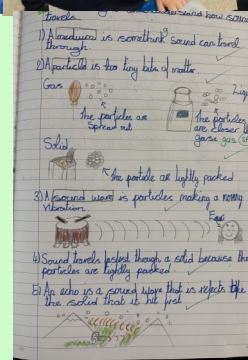 understand how sound
travels.
1) A medium is something sound can travel
through.
2) A particle is tiny bits of matter.
Gas
Liqu
The particles are
spread out
The particles
are closer
gas
Solid
The particle are tightly packed
3) A sound wave is particles making a
vibration.
Ear
4) Sound travels fastest though a solid because the
particles are tightly packed
5) An echo is a sound wave that is rejects
the solid that it hit first